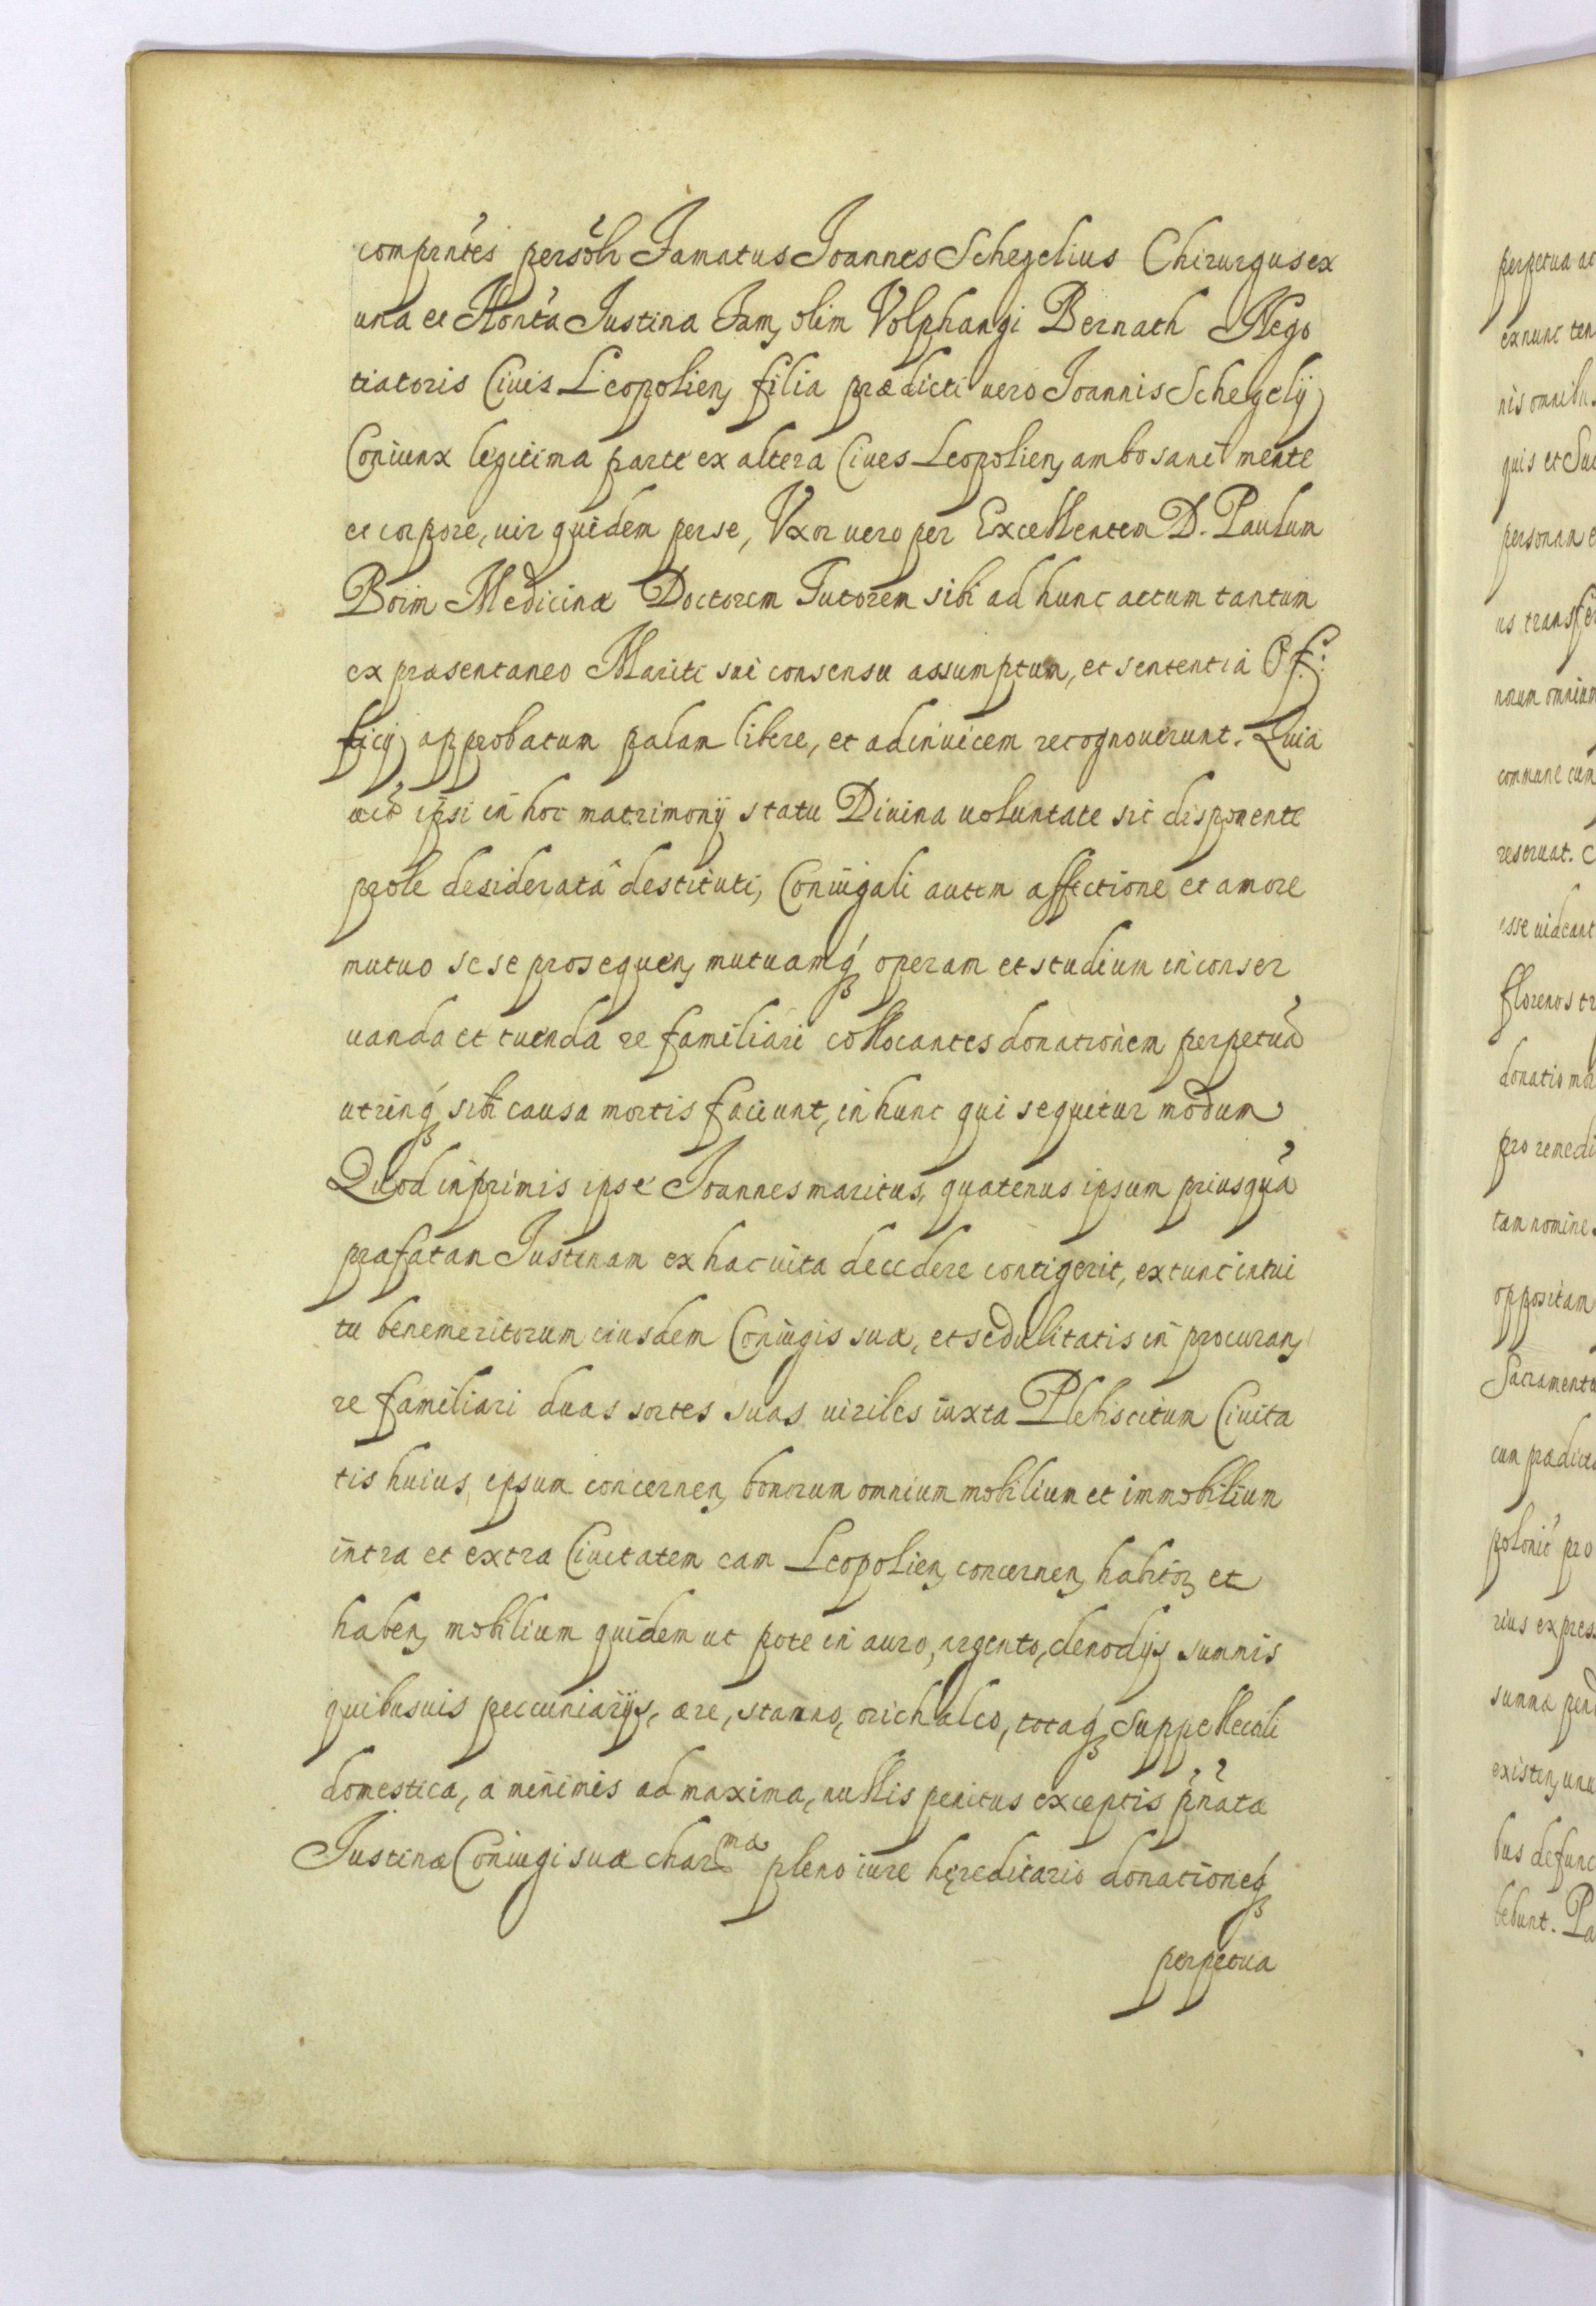 comprñtes persõlr Famatus Joannes Schegelius Chirurgus ex
una et Honta Justina Fam, olim Volphangi Bernath Nego
tiatoris Ciuis Leopolien, filia prædicti uero Joannis Schegelij
Coniunx legitima parte ex altera Ciues Leopolien, ambo sani mente
et corpore, uir quidem per se, Vxor uero per Excellentem D. Paulum
Boim Medicinæ Doctorem Tutorem sibi ad hunc actum tantum
ex præsentaneo Mariti sui consensu assumptum, et sententiâ Of:
ficij approbatum palam libere, et adinuicem recognouerunt. Quia
ipsi in hoc matrimonij statu Diuina uoluntate sic disponente
prole desideratâ destituti, Coniugali autem affectione et amore
mutuo sese prosequen, mutuamq; operam et studium in conser
uanda et tuenda re familiari collocantes donationem perpetuã
utrinq; sibi causa mortis faciunt, in hunc qui sequitur modum
Quod inprimis ipse Joannes maritus, quatenus ipsum priusquã
præfatam Justinam ex hac uita decedere contigerit, extunc intui
tu benemeritorum eiusdem Coniugis suæ, et sedulitatis in procuran,
re familiari duas sortes suas uiriles iuxta Plebiscitum Ciuita
tis huius, ipsum concernen, bonorum omnium mobilium et immobilium
intra et extra Ciuitatem eam Leopolien, concernen, habitor, et
haben, mobilium quidem ut pote in auro, argento, clenodijs summis
quibusuis peccuniarijs, ære, stanno, orichalco, totaq; Suppellectili
domestica, a minimis ad maxima, nullis penitus exceptis pñatæ
Justinæ Coniugi suæ char^mæ pleno iure hęreditario donationeq;
perpetua
perpetua ac
ex nunc ten
nis omnibus
quis et Suc
personam e
us transfer
norum omnium
commune cum
reseruat. C
esse uideant
florenos tr
donatio mor
pro remedi
tam nomine
oppositam
Sacramento
cum prædicto
polonic pro
rius expres
summæ pend
existen, unu
bus defunc
bebunt. Pa